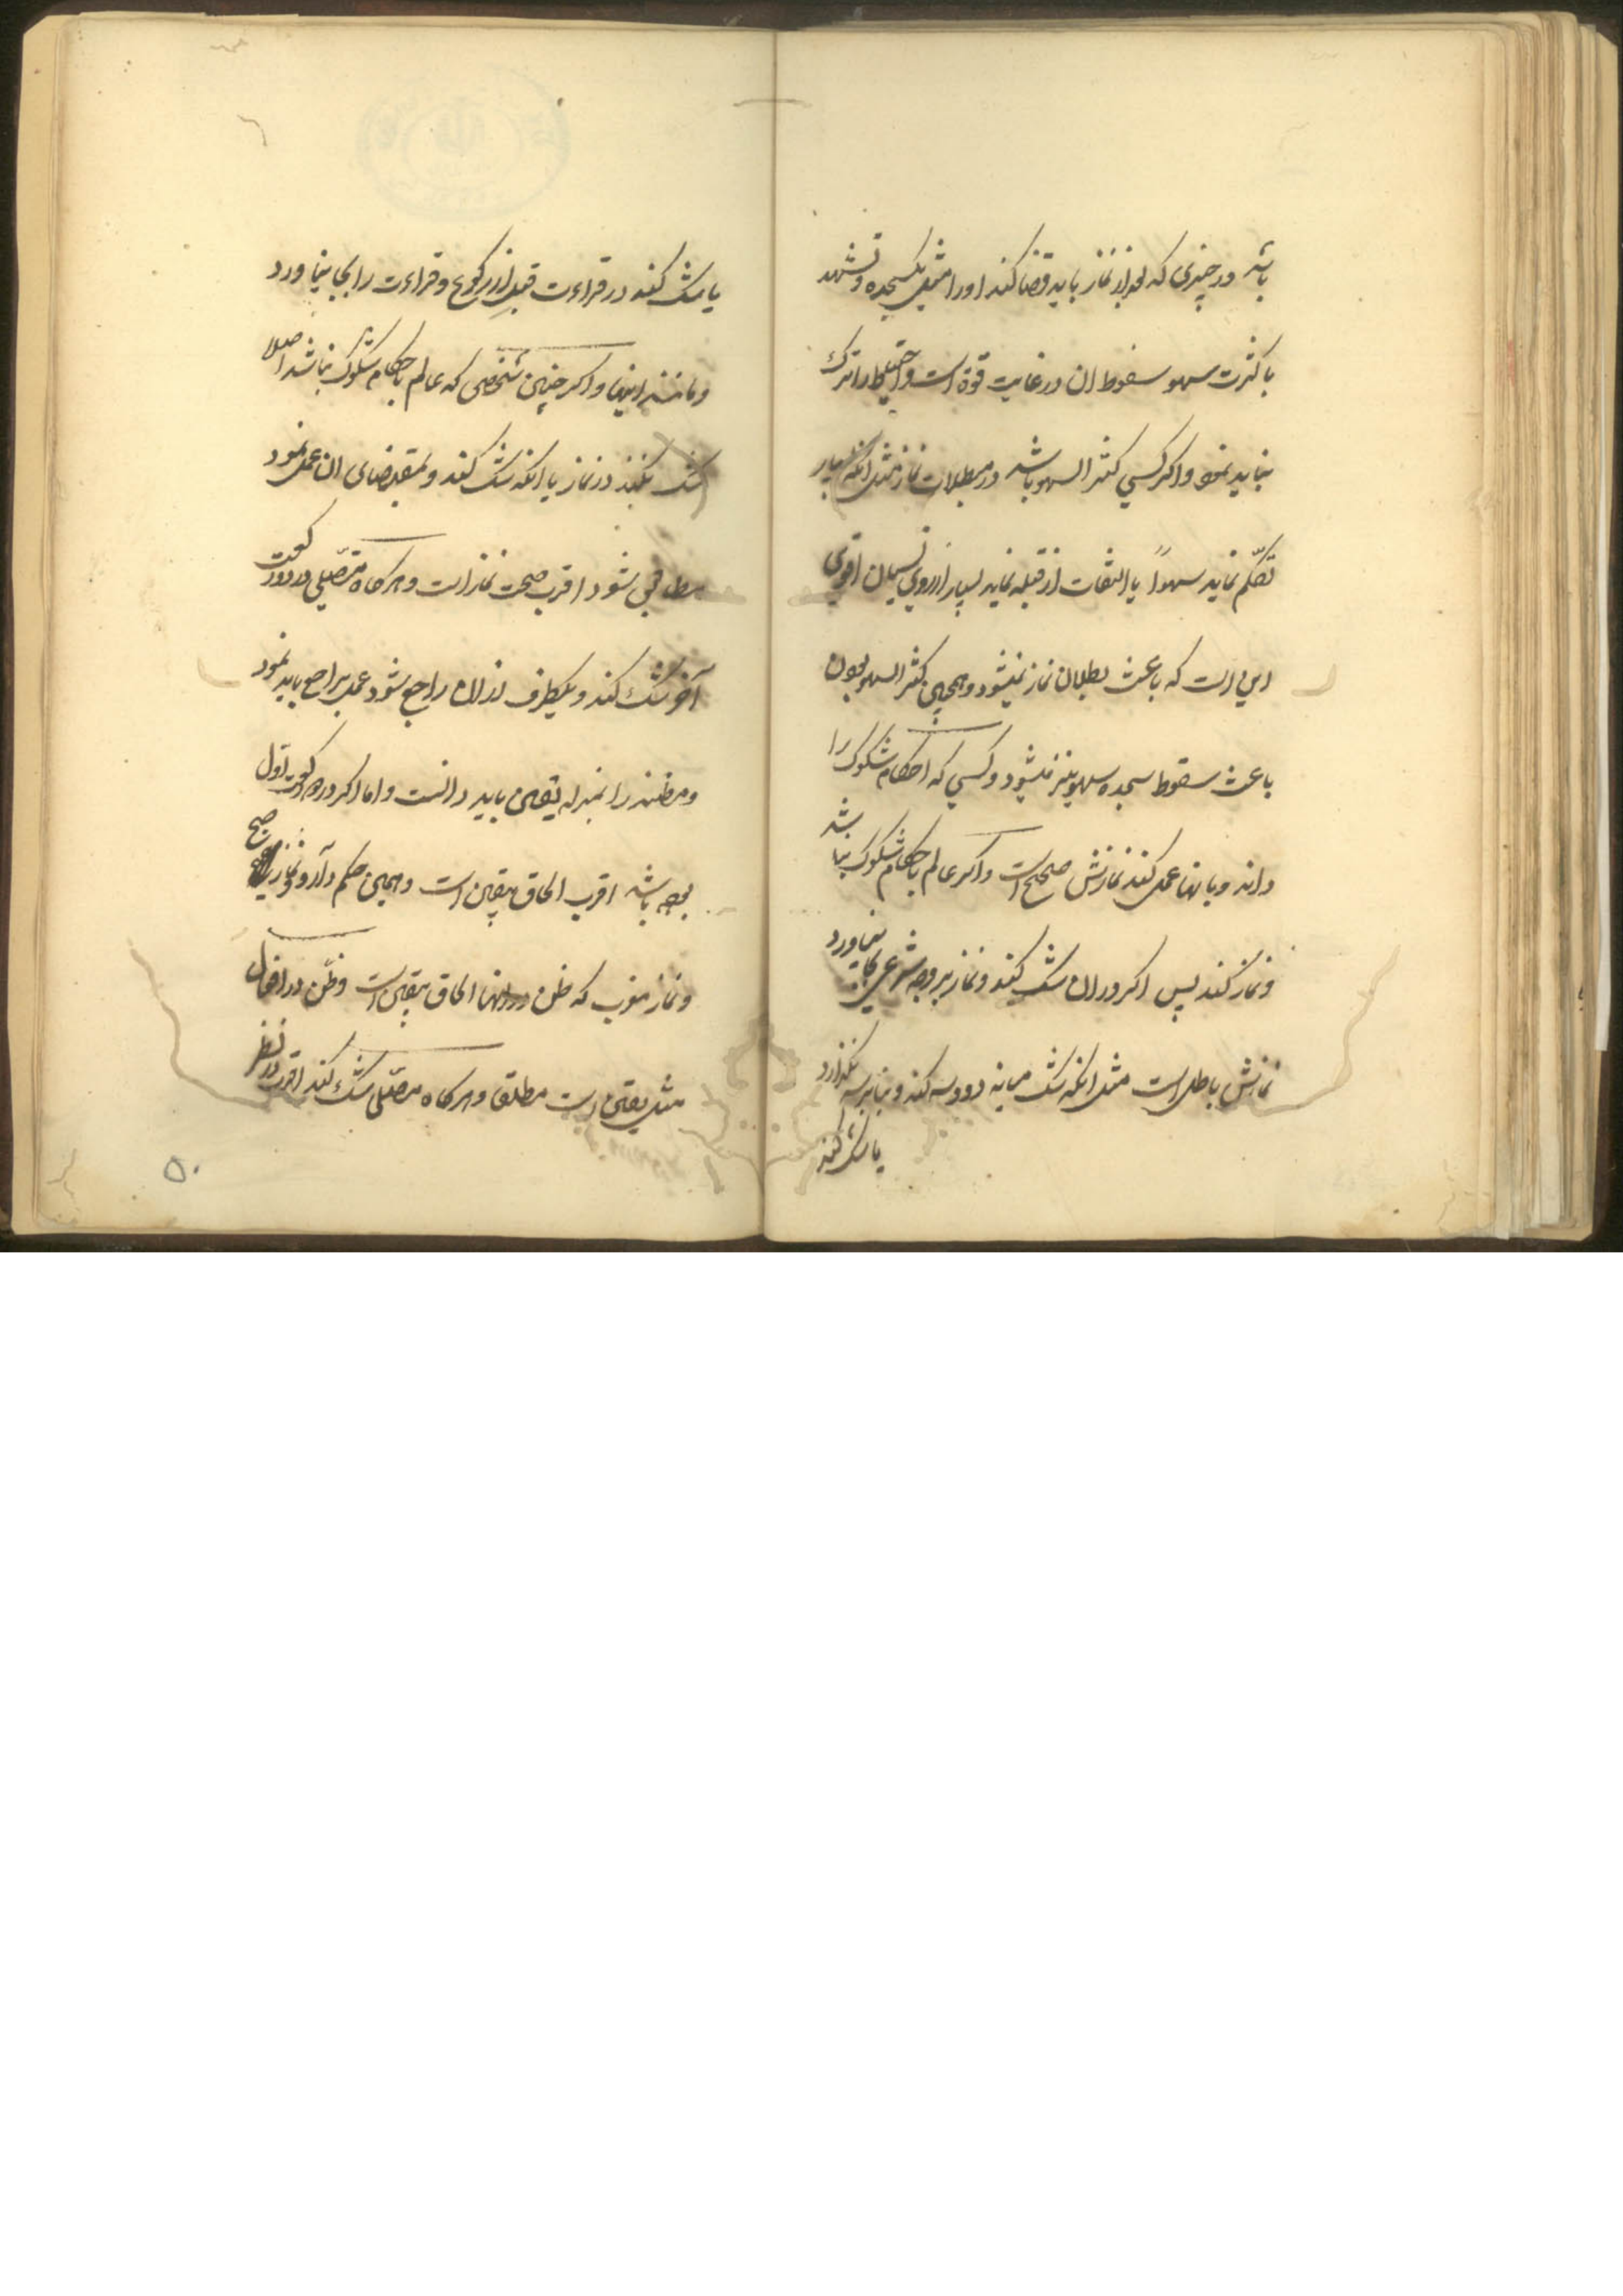 باشد در چیزی که بعد از نماز باید قضا کند او را مثل یکسجده و تشهد
با کثرت سهو سقوط ان در غایت قوة است و احتیاط را ترک
نباید نمود و اکر کسی کثیر السهو باشد در مبطلات نماز مثل انکه بسیار
تکلّم نماید سهواً یا التفات از قبله نماید بسیار از روی نسیان اقوی
این است که باعث بطلان نماز نمیشود و همچنین کثیر السهو بودن
باعث سقوط سجده سهو نیز نمیشود و کسی که احکام شکوک را
داند و بانها عمل کند نمازش صحیح است و اکر عالم باحکام شکوک نباشد
و نماز کند پس اکر در ان شک کند و نماز بر وجه شرعی بجا نیاورد
نمازش باطل است مثل انکه شک میانه دو و سه کند و بنا بر سه نگذارد
یا شک کند
یا شک کند در قراءت قبل از رکوع و قراءت را بجا نیاورد
و مانند اینها و اکر چنین شخصی که عالم باحکام شکوک نباشد اصلا
شک نکند در نماز یا انکه شک کند و بمقتضای ان عمل نمود
مطابق بشود اقرب صحت نماز است و هر کاه مصّلی در دو رکعت
آخر شک کند و یکطرف از ان راجح شود عمل براجح باید نمود
و مظنه را بمنزله یقین باید دانست و اما اکر در دو رکعت اوّل
بوجه باشد اقرب الحاق بیقین است و همین حکم دارد نماز صبح
و نماز مغرب که ظن در انها الحاق بیقین است و ظنّ در افعال
مثل یقین است مطلقا و هر کاه مصّلی شک کند اقرب در نظر
۵۰